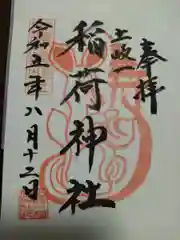 奉拝
上坂一
稲荷神社
令和五年八月十二日